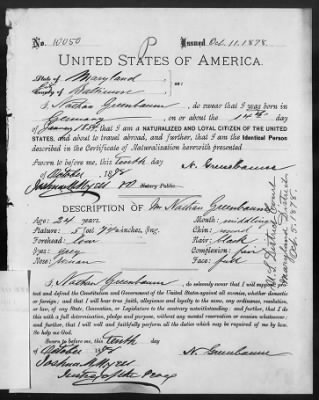 No. 10050 Issued Oct. 11, 1878.
UNITED STATES OF AMERICA.
State of Maryland
County of Baltimore
I, Nathan Greenbaum, do swear that I was born in
Germany on or about the 14th day of
that I am a NATURALIZED AND LOYAL CITIZEN OF THE UNITED
STATES, and about to travel abroad, and further, that I am the Identical Person
described in the Certificate of Naturalization herewith presented
Sworn to before me, this tenth day N. Greenbaum
of October 1878
Joshua Notary Public.
DESCRIPTION OF Mr Nathan Greenbaum
Age: 24 years. Mouth: middling
Stature: 5 feet inches, Eng. Chin: round
Forehead: low Hair: black
Eyes: grey Complexion: fair
Nose: Face: full
U.S. District Court
Maryland District
Oct. 5. 1878.
I, Nathan Greenbaum, do solemnly swear that I will support, protect
and defend the Constitution and Government of the United States against all enemies, whether domestic
or foreign; and that I will bear true faith, allegiance and loyalty to the same, any ordinance, resolution
or law of any State, Convention, or Legislature to the contrary notwithstanding; and further, that I do
this with a full determination, pledge and purpose, without any mental reservation or evasion whatsoever;
and further, that I will well and faithfully perform all the duties which may be required of me by law.
So help me God.
Sworn to before me, this tenth day
of October 1878 N. Greenbaum
Joshua
Justice of the Peace